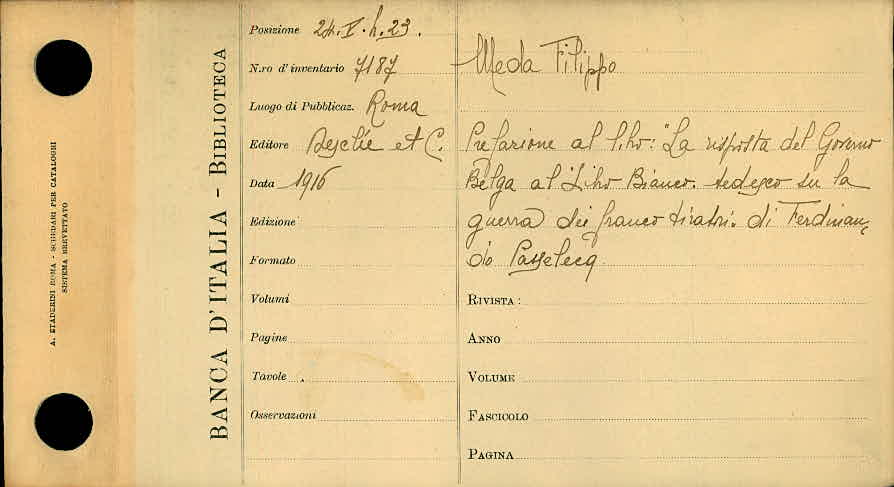 A. STADERINI ROMA - SCHEDARI PER CATALOGHI
SISTEMA BREVETTATO
BANCA D'ITALIA - BIBLIOTECA
Posizione 24.V.h.23.
N.ro d'inventario 7187
Luogo di Pubblicaz. Roma
Editore Desclée et C.
Data 1916
Edizione
Formato
Volumi
Pagine
Tavole
Osservazioni
Meda Filippo
Prefazione al libro: "La risposta del Governo
Belga al "Libro Bianco" tedesco su la
guerra dei franco tiratori" di Ferdinan,
do Passelecq
RIVISTA:
ANNO
VOLUME
FASCICOLO
PAGINA